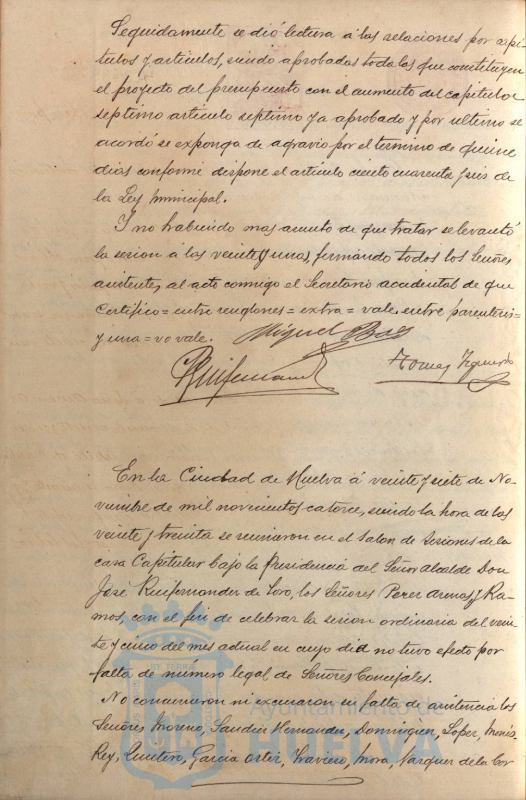 Seguidamente se dió lectura á las relaciones por capi-
tulos y articulos, siendo aprobadas todas las que constituyen
el proyecto del presupuesto con el aumento del capitulo
septimo articulo septimo ya aprobado y por ultimo se
acordó se exponga de agravio por el termino de quince
dias conforme dispone el articulo ciento cuarenta y seis de
la Ley municipal.
Y no habiendo mas asunto de que tratar se levantó
la sesion á las veinte (y una), firmando todos los Señores
asistentes al acto conmigo el Secretario accidental de que
Certifico = entre renglones = extra = vale, entre parentesis =
y una = no vale. Miguel
Tomas Izquierdo
En la Ciudad de Huelva á veinte y siete de No-
viembre de mil novecientos catorce, siendo la hora de las
veinte y treinta se reunieron en el Salon de Sesiones de la
casa Capitular bajo la Presidencia del Señor Alcalde Don
José Ruifernandez de Soro, los Señores Perez Armas y Ra-
mos, con el fin de celebrar la sesion ordinaria del vein-
te y cinco del mes actual en cuyo dia no tuvo efecto por
falta de número legal de Señores Concejales.
No concurrieron ni excusaron su falta de asistencia los
Señores Moreno, Sanchez Hernandez, Dominguez, Lopez,
Rey, Quintero, Garcia Ortiz, Traviero, Mora, Vazquez de la Cor
Ayuntamiento de
HUELVA